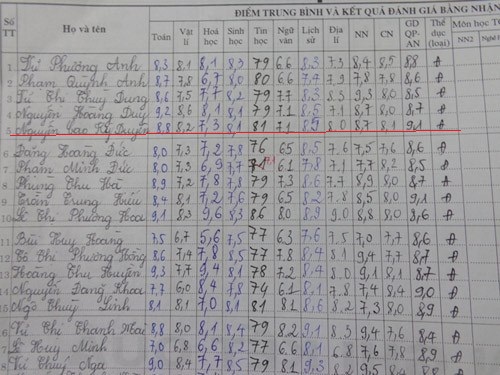 ĐIỂM TRUNG BÌNH VÀ KẾT QUẢ ĐÁNH GIÁ BẰNG NHẬN
Số TT Họ và tên Toán Vật lí Hoá học Sinh học Tin học Ngữ văn Lịch sử Địa lí NN CN GD QP-AN Thể dục (loại) Môn học NN2
1 Phương Anh 8,3 8,1 8,1 8,3 79 6.6 8.3 7.3 8,4 8,5 8,8 Đ
2 Phạm Quỳnh Anh 8,7 7,8 6,7 8,0 80 6.6 7.4 7.9 7.8 7,8 8,6 Đ
3 Thị Thuỳ Dung 8,6 7,5 7,7 8,2 79 7.7 8.3 8.5 9,3 8,0 8.5 Đ
4 Nguyễn Hoàng Duy 9,2 8,6 8,1 8,1 79 7.1 8.5 7.1 8,7 8,0 8,7 Đ
5 Nguyễn Cao Kỳ Duyên 8.8 8,2 7,3 8,1 81 7.1 8.9 8.0 8,7 8,1 9,1 Đ
6 Đặng Hoàng Đức 8,0 7,3 7,2 7,8 76 6.5 8.5 7.6 7,5 7,6 8,6 Đ
7 Phạm Minh Đức 8,0 7,3 6,9 7,7 6.1 7,8 7,1 7,7 8,2 8,5 Đ
8 Phùng Thu Hà 8,9 7,2 7,8 7,8 79 7.3 8.6 7.7 8,9 8,0 8,7 Đ
9 Trần Trung Hiếu 8,4 8,1 7,2 7,6 79 6.5 8.2 7.8 8,5 8,0 9,1 Đ
10 Lê Thị Phương Hoa 9,1 8,3 9,6 8,3 86 8.0 8,9 9.0 8,8 8,0 8,6 Đ
11 Bùi Huy Hoàng 7,5 6,7 5,6 7,5 77 6.3 7,6 7.5 7,0 7,7 8,6 Đ
12 Thị Phương Hồng 8,6 7,4 7,8 7,5 77 7.8 8.4 8.1 9,4 7,7 8.7 Đ
13 Hoàng Thu Huyền 9,3 7,7 9,4 8,1 78 7.2 8.4 8.0 9,1 8,1 8,7 Đ
14 Nguyễn Đăng Khoa 7,7 6,0 8,4 7,8 74 6.1 8.1 7.8 7,4 8,4 9,0 Đ
15 Ngô Thuỳ Linh 8,1 8,1 7,0 8,1 81 8.1 8.6 8.2 7,3 8,0 8,9 Đ
Thị Thanh Mai 8,8 8,0 8,1 8,4 79 8.2 9.1 8.3 9,4 7,6 8,4 Đ
Lê Huy Minh 7,0 6,8 6,6 8,2 77 6.6 8.1 6.8 7,6 7,8 8,9 Đ
Vũ Thuý Nga 9,0 8,4 7,7 8,5 79 8.1 9.3 8.2 9,5 8.4 Đ